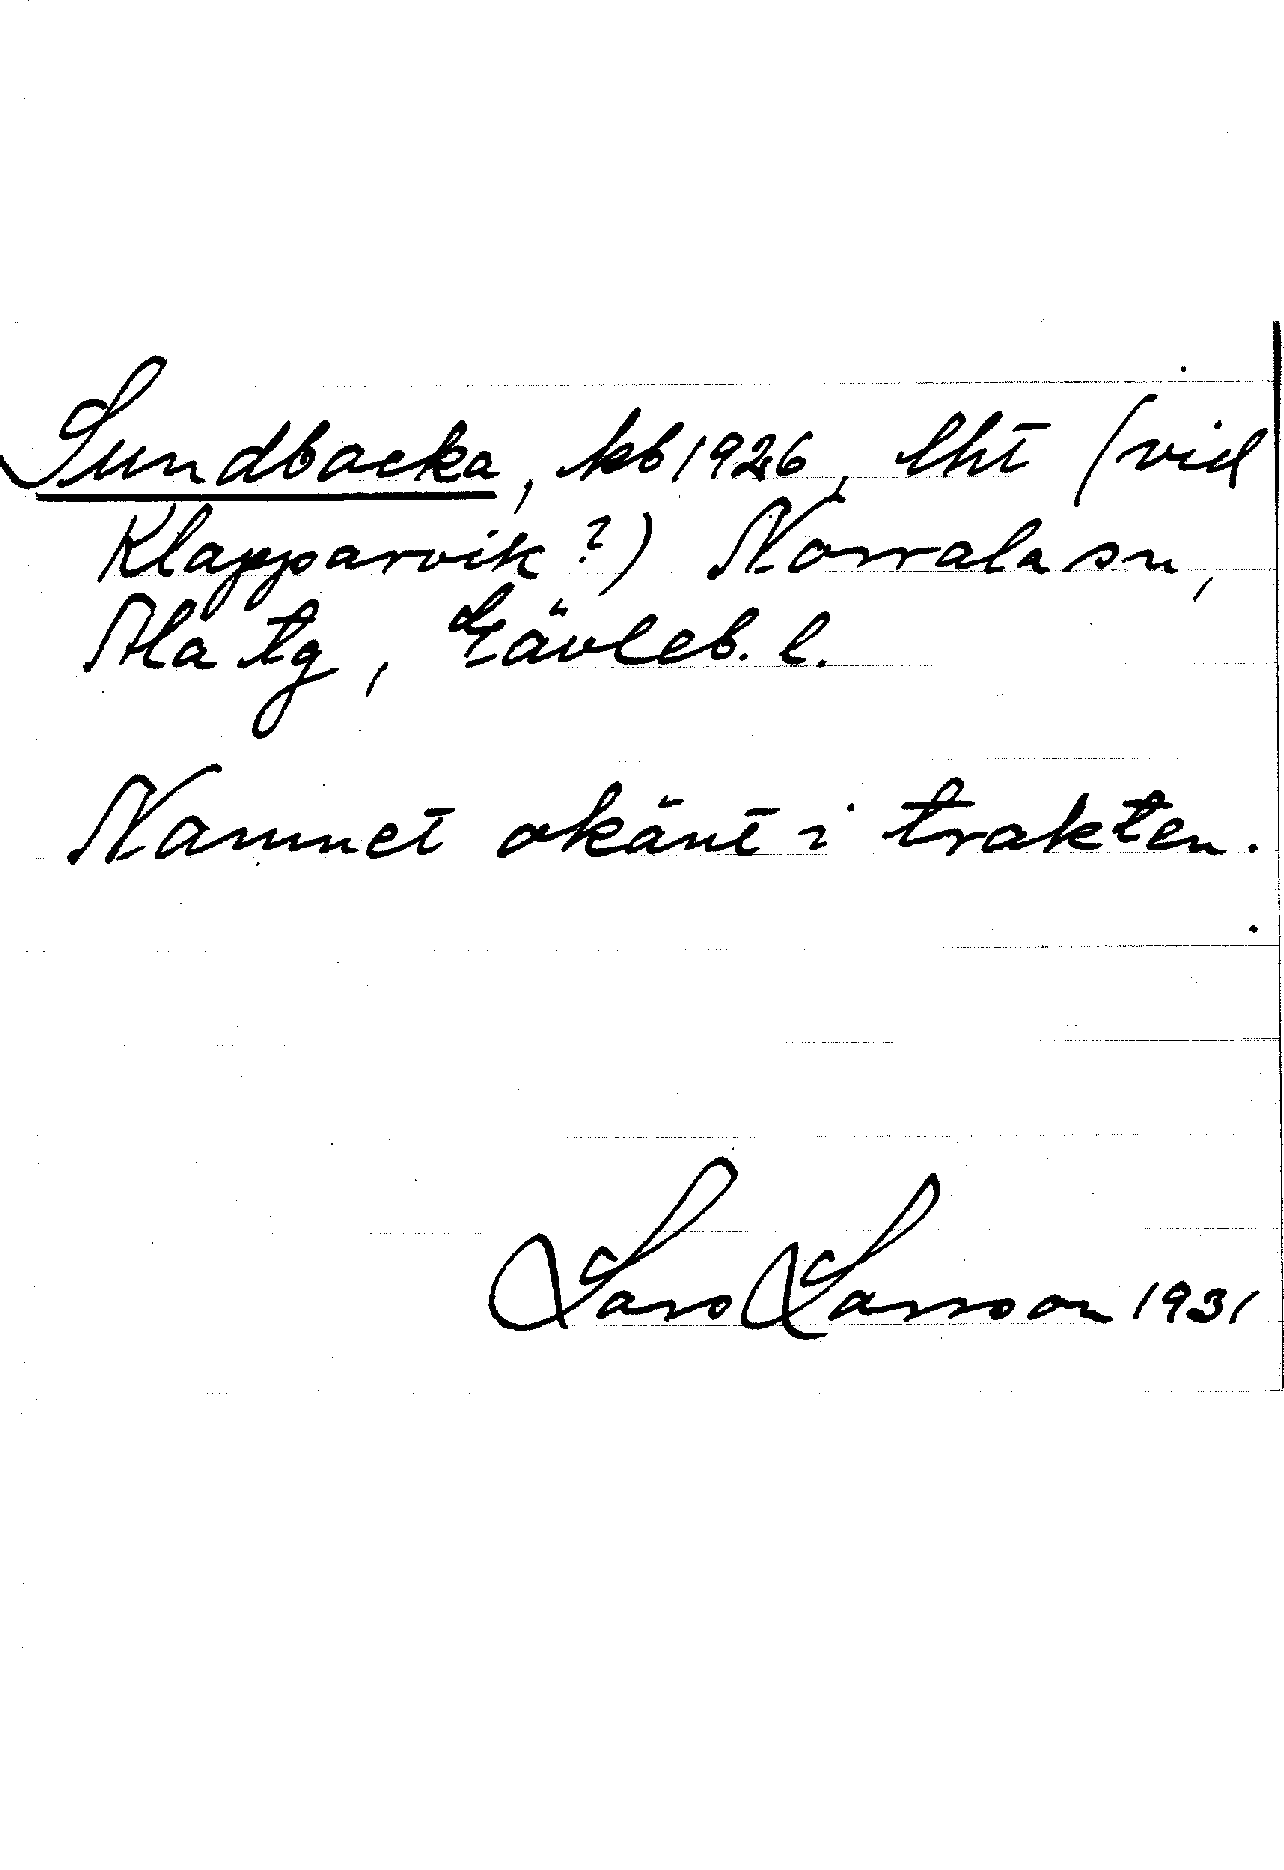 Sundbacka, kb 1926, lht (vid
Klapparvik?) Norrala sn,
Ala tg, Gävleb. l.
Namnet okänt i trakten.
Lars Larsson 1931